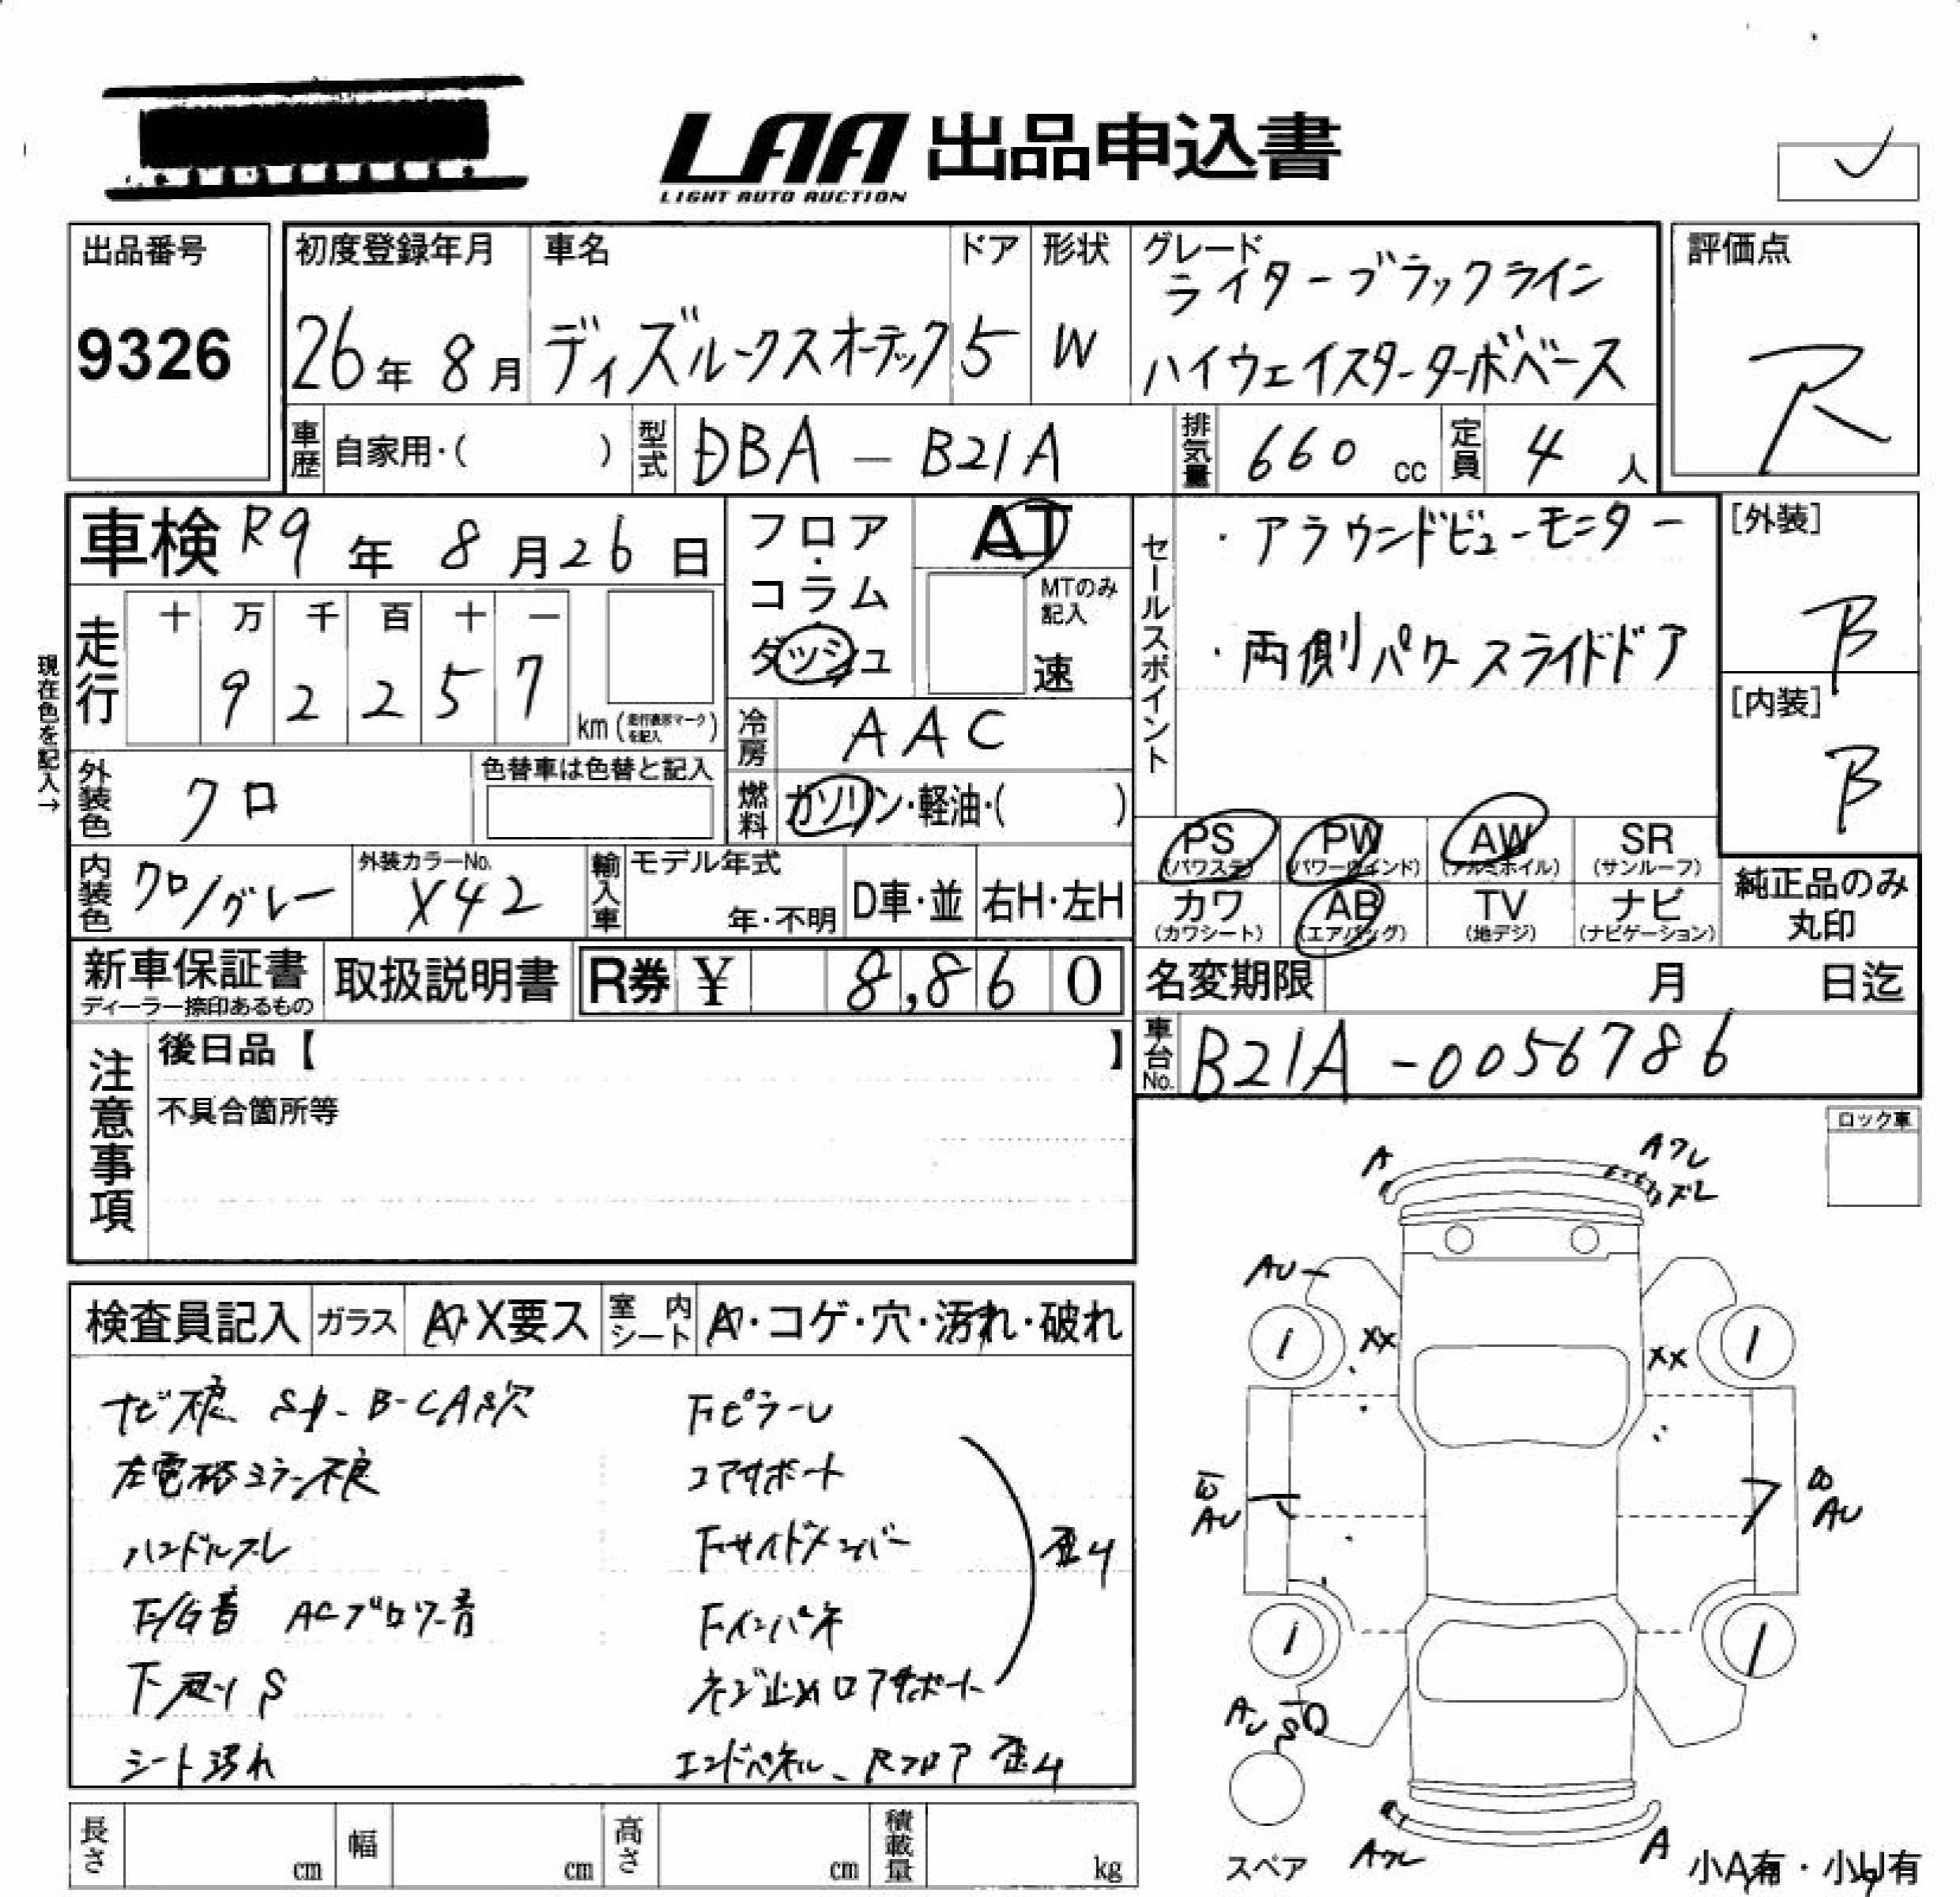 LAA 出品申込書
LIGHT AUTO AUCTION
出品番号
9326
初度登録年月
26年 8月
車名
ディズルークスオーテック
ドア
5
形状
W
グレード
ライダーブラックライン
ハイウェイスターターボベース
評価点
R
車歴 自家用・( )
型式 DBA - B21A
排気量 660 cc
定員 4 人
車検 R9年 8月26日
フロア・コラム・ダッシュ
AT
MTのみ記入
速
セールスポイント
・アラウンドビューモニター
・両側パワースライドドア
[外装]
B
[内装]
B
現在色を記入→
走行
十 万 千 百 十 一
9 2 2 5 7
km(走行表示マークを記入)
冷房 AAC
燃料 ガソリン・軽油・( )
外装色 クロ
色替車は色替と記入
内装色 クロ/グレー
外装カラーNo. X42
輸入車 モデル年式
年・不明
D車・並
右H・左H
PS (パワステ)
PW (パワーウインド)
AW (アルミホイル)
SR (サンルーフ)
カワ (カワシート)
AB (エアバッグ)
TV (地デジ)
ナビ (ナビゲーション)
純正品のみ丸印
新車保証書
ディーラー捺印あるもの
取扱説明書
R券 ¥ 8,860
名変期限 月 日迄
車台No. B21A-0056786
注意事項
後日品【 】
不具合箇所等
ロック車
検査員記入
ガラス A・X要ス
室内シート A・コゲ・穴・汚れ・破れ
ナビ不良 B-CAS欠
左電格ミラー不良
ハンドルスレ
F/G音 ACブロワー音
下廻りS
シート汚れ
Fピラーレ
コアサポート
Fサイドメンバー
Fインパネ
ネジ止めロアサポート
歪み
エンドパネル、Rフロア 歪み
A
Aワレ
カズレ
AU
XX
XX
1
1
AU
B
AU
1
1
AU
S
スペア
Aワレ
A
小A有・小U有
長さ cm
幅 cm
高さ cm
積載量 kg